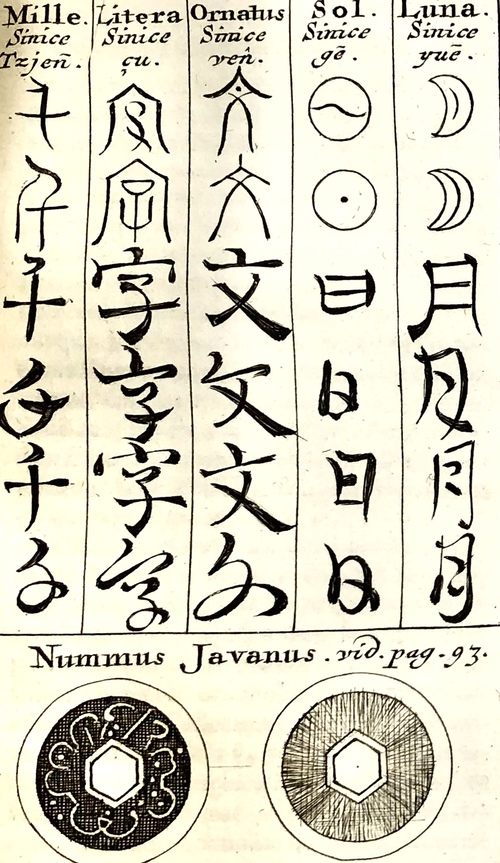 Mille. Litera Ornatus Sol. Luna.
Sinice Sinice Sinice Sinice Sinice
Tzjeñ. çu. veñ. gē. yuē.
千 字 文 日 月
千 字 文 日 月
千 字 文 日 月
千 字 文 日 月
千 字 文 日 月
千 字 文 日 月
Nummus Javanus. vid. pag. 93.